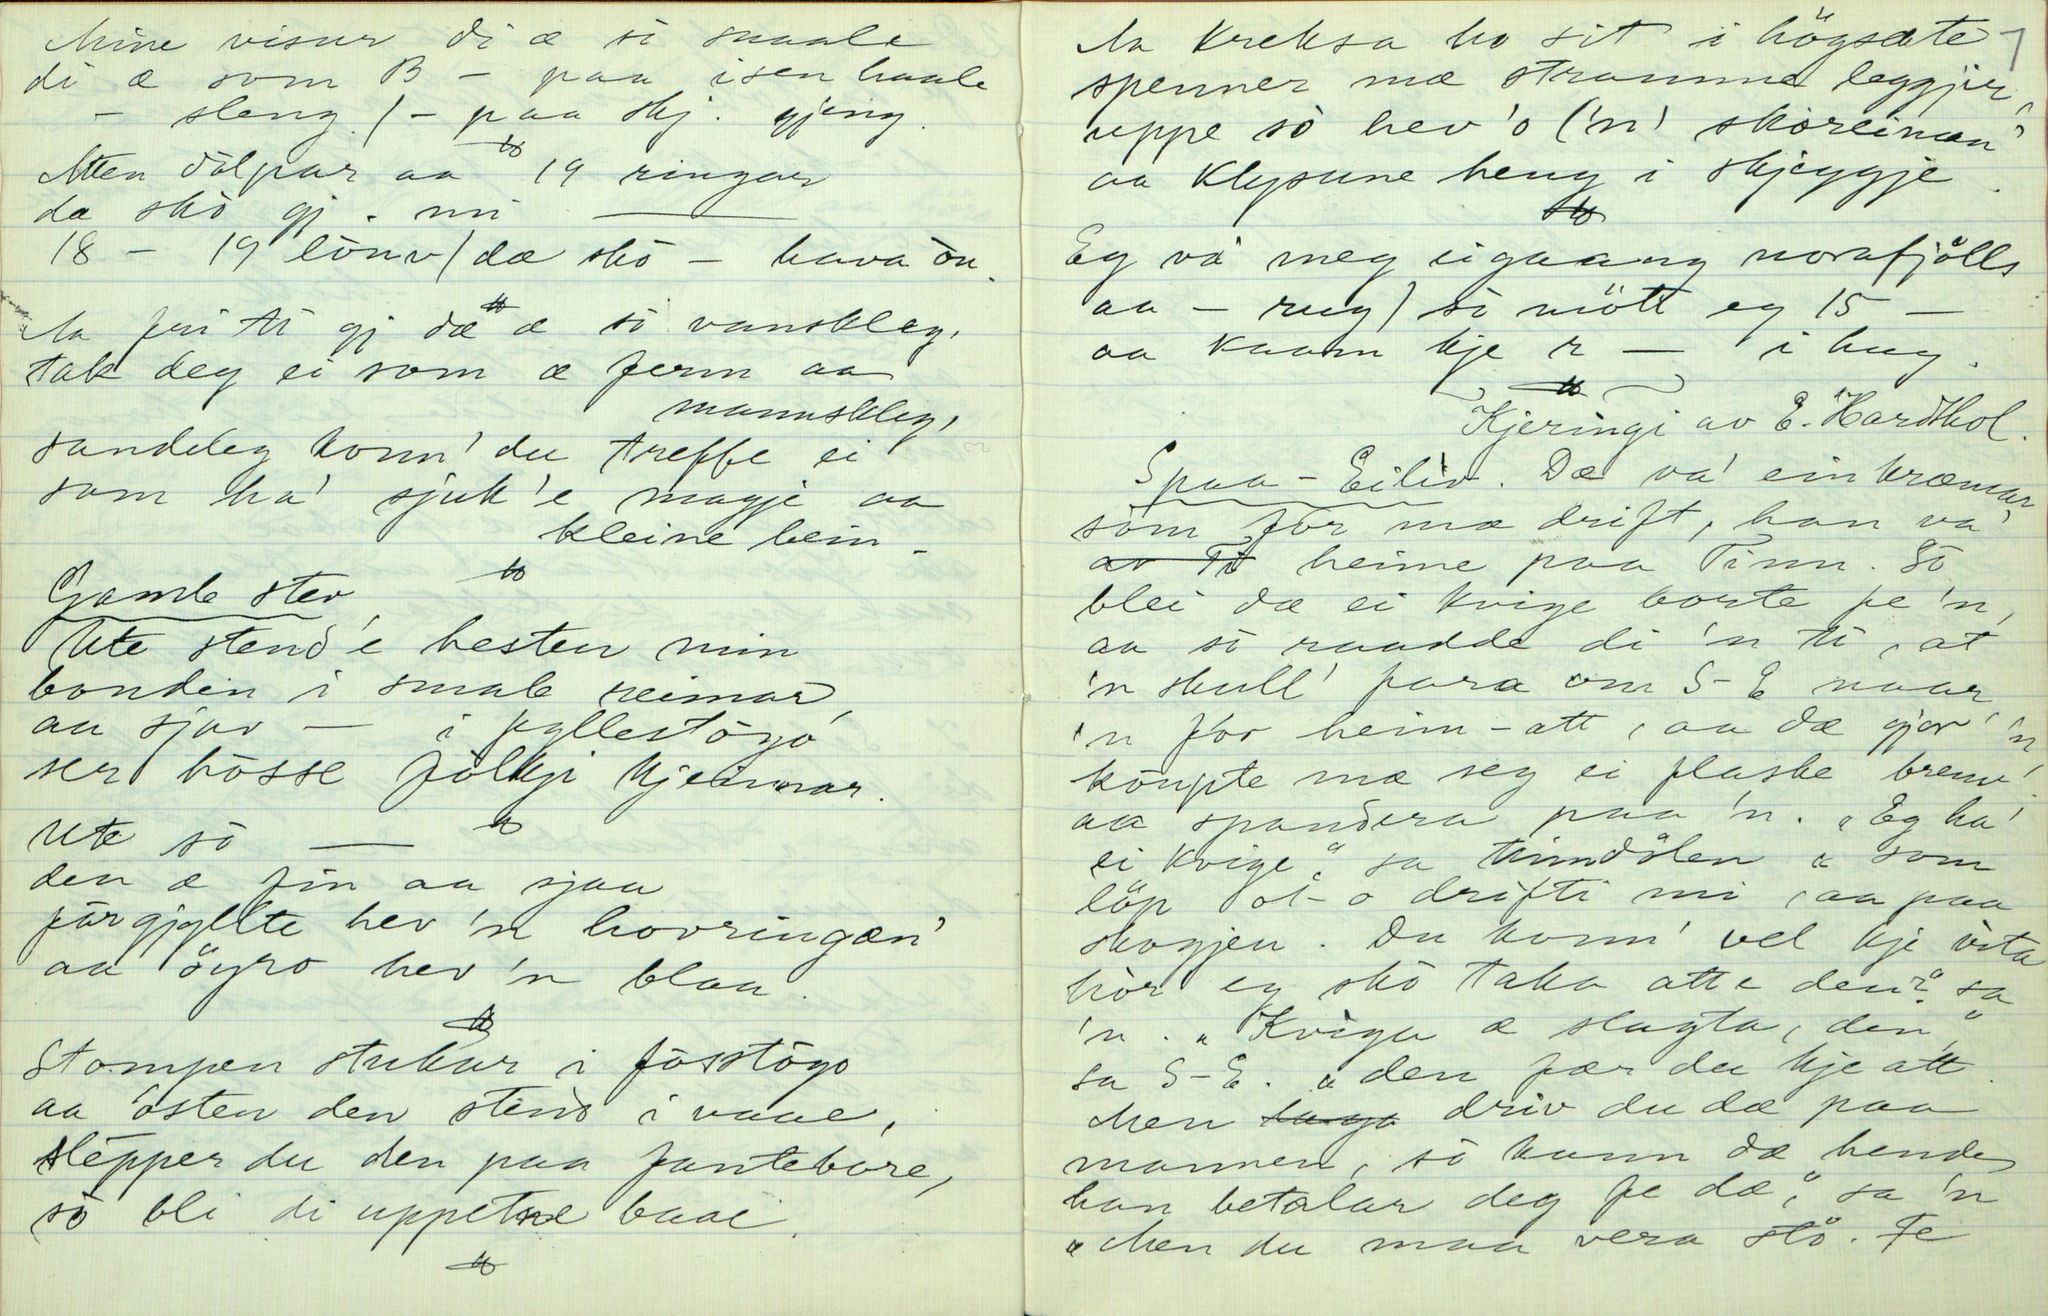 Mine visur di æ so snaale
di æ som B – paa isen haale
– sleng / – paa skj. gjeng.
Atten dölpar aa 19 ringar
da sko gj. mi ——
18 – 19 lönv / dæ sko – hava ön.
Aa fri ti gj dæ æ so vanskleg,
tak deg ei som æ ferm aa
mannskleg,
sandeleg konn' du treffe ei
som ha' sjuk'e magje aa
kleine bein –
Gamle stev
Ute stend'e hesten min
bonden i smale reimar,
aa sjav — i fyllestögo
ser hösse folkji kjeimar.
Ute so ——
den æ fin aa sjaa
förgjyllte hev 'n hovringæn'
aa öyro hev 'n blaa.
Stompen stukar i fösstögo
aa osten den stend i vaae,
slepper du den paa fantebore,
so bli di uppetne baae.
7
Aa Kreksa ho sit i högsæte
spenner mæ stramme leggjir,
uppe so hev'o ('n' skoreiman'
aa Klysune heng i skjeggje.
Eg va meg eigaang norafjölls
aa – rug) so mött eg 15 —
aa kaam kje r — i hug.
Kjeringi av E. Hardskol.
Spaa-Eiliv. Dæ va' ein kræmar
som for mæ drift, han va'
av Ti heime paa Tinn. So
blei dæ ei kvige borte fe 'n,
aa so raadde di 'n ti, at
'n skull' fara om S-E naar
'n for heim-att, aa dæ gjor' 'n
köupte mæ seg ei flaske brenv'.
aa spandera paa 'n. „Eg ha'
ei kvige," sa tinndölen „som
löp ot-o drifti mi, aa paa
skogjen. Du konn' vel kje vita
hor eg sko taka atte den?" sa
'n. „Kviga æ slagta, den,"
sa S-E. „den fær du kje att.
Men driv du dæ paa
mannen, so kann dæ hende
han betalar deg fe dæ", sa 'n
„Men du maa vera stö. Fe